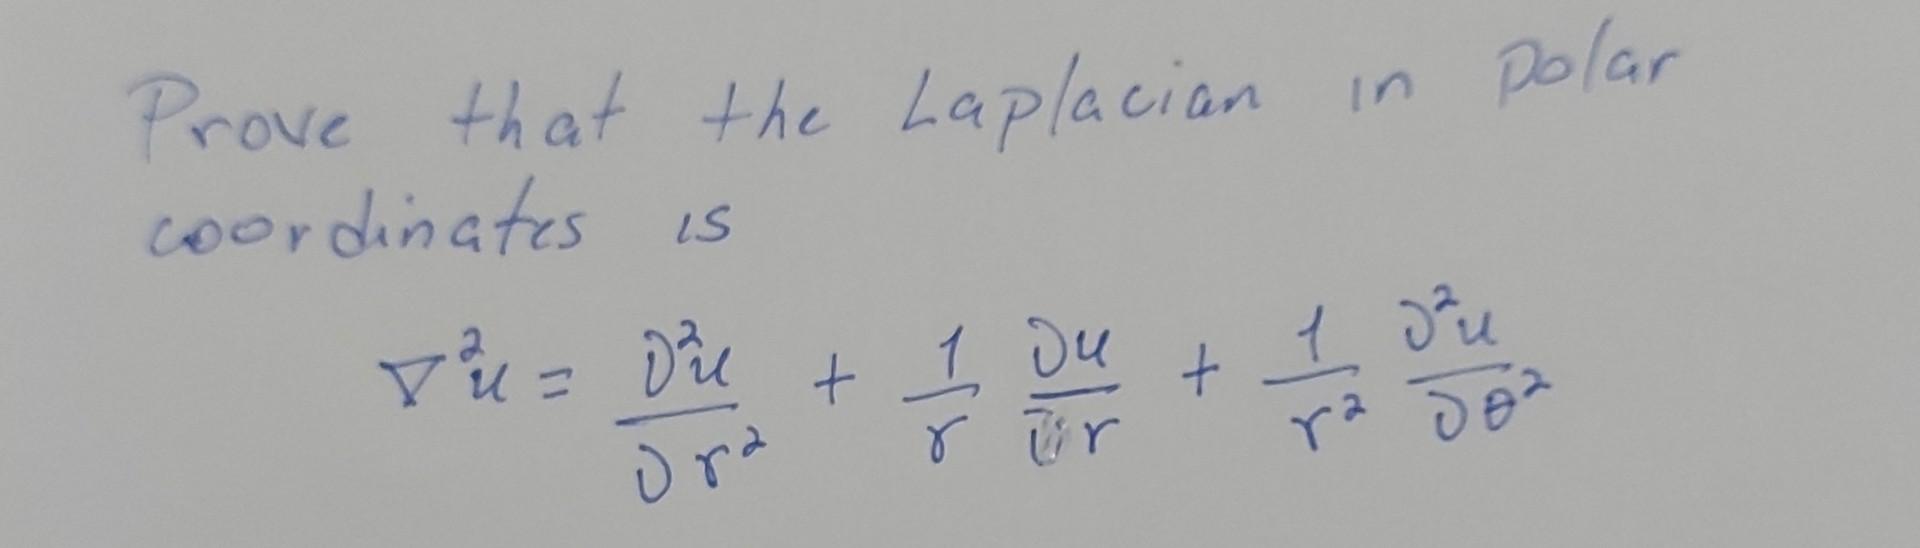 Prove that the Laplacian in polar
coordinates is
∇²u = ∂²u/∂r² + 1/r ∂u/∂r + 1/r² ∂²u/∂θ²